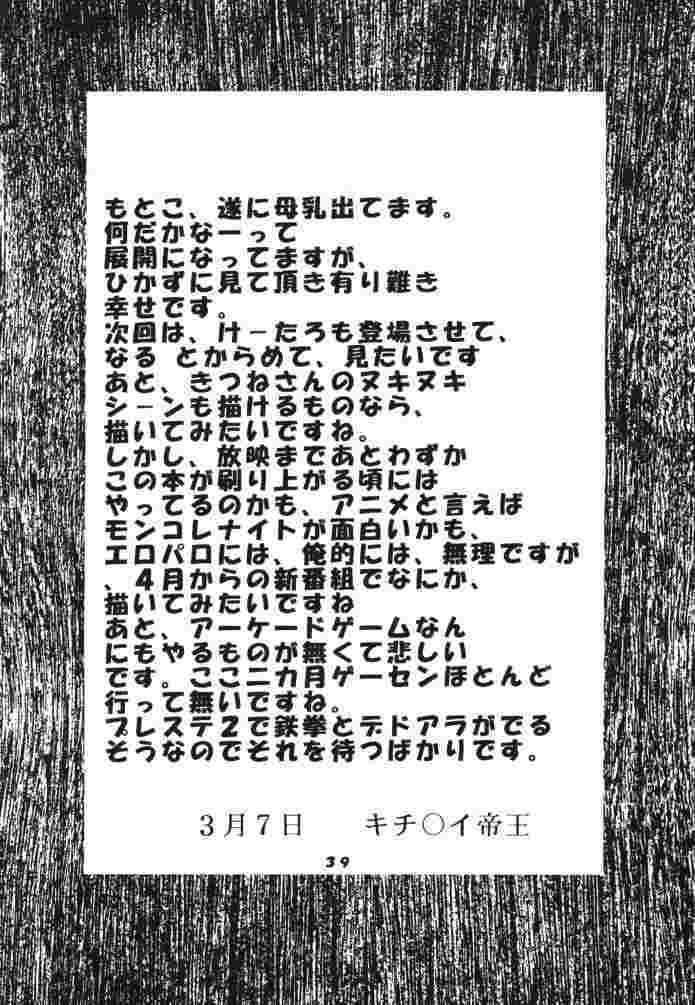 もとこ、遂に母乳出てます。
何だかなーって
展開になってますが、
ひかずに見て頂き有り難き
幸せです。
次回は、けーたろも登場させて、
なる とからめて、見たいです
あと、きつねさんのヌキヌキ
シーンも描けるものなら、
描いてみたいですね。
しかし、放映まであとわずか
この本が刷り上がる頃には
やってるのかも、アニメと言えば
モンコレナイトが面白いかも、
エロパロには、俺的には、無理ですが
、4月からの新番組でなにか、
描いてみたいですね
あと、アーケードゲームなん
にもやるものが無くて悲しい
です。ここ二カ月ゲーセンほとんど
行って無いですね。
プレステ2で鉄拳とデドアラがでる
そうなのでそれを待つばかりです。
3月7日　　キチ○イ帝王
39